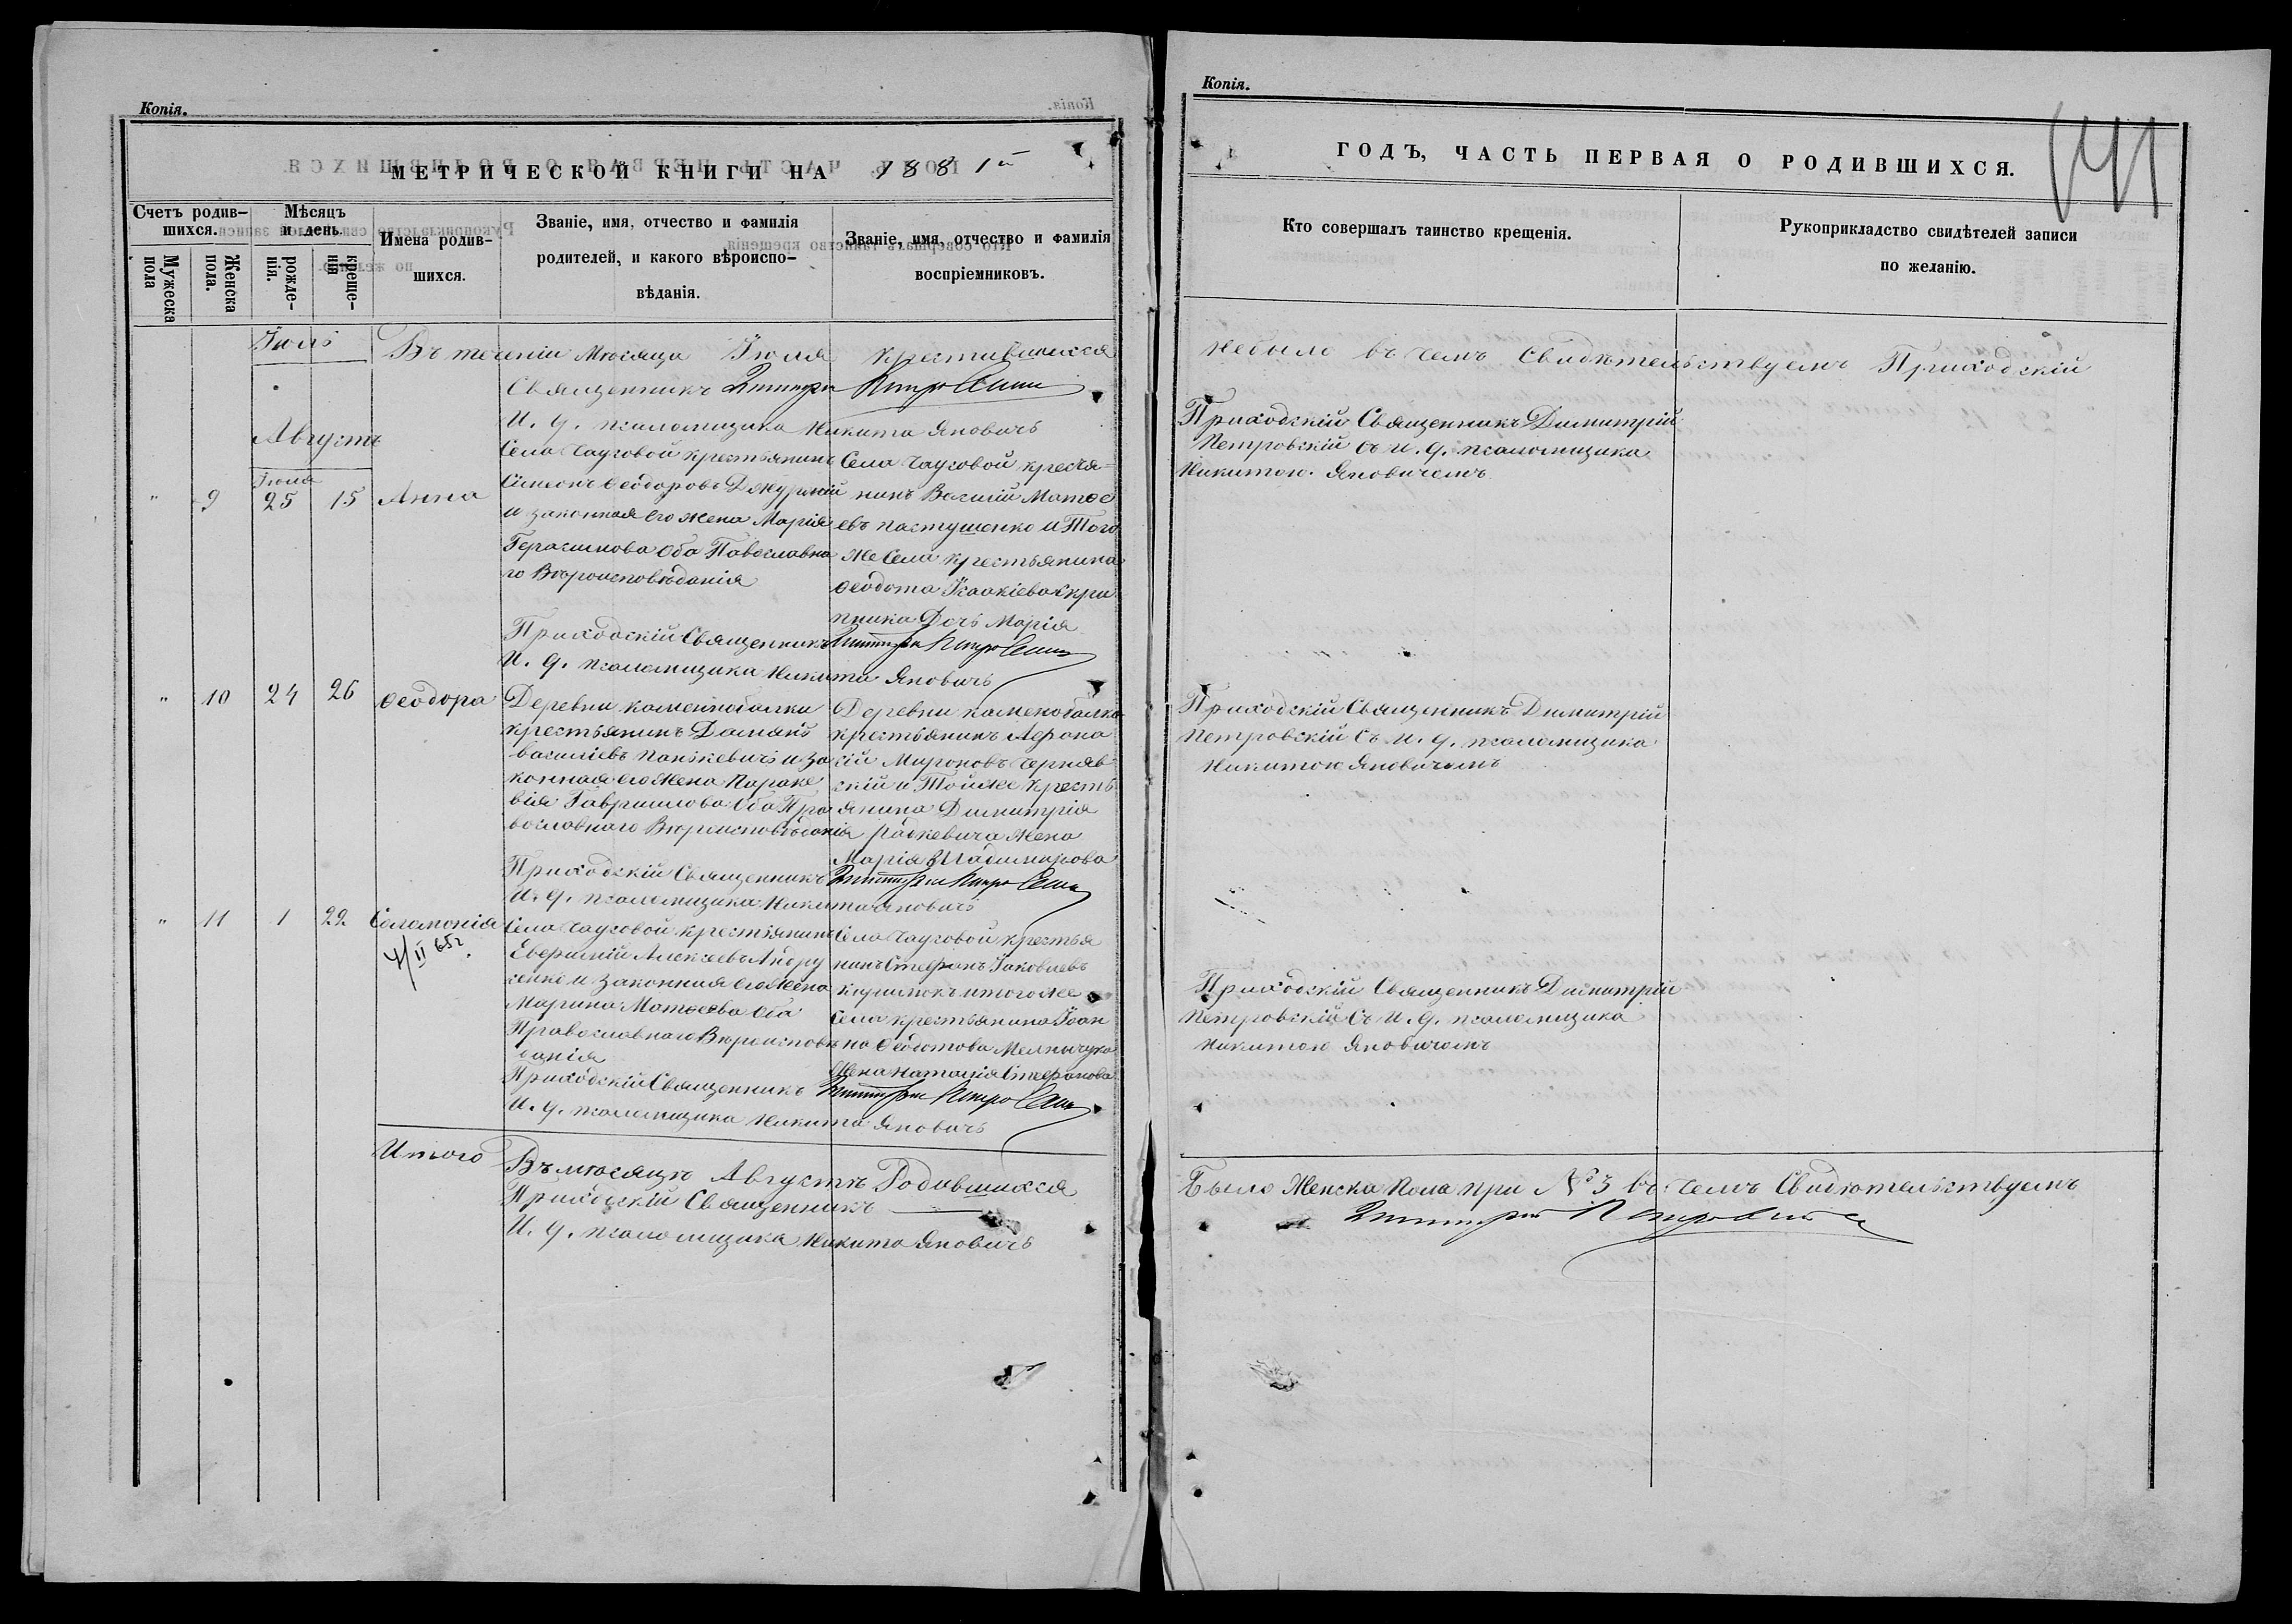 Копія.
МЕТРИЧЕСКОЙ КНИГИ НА 1881й
Счетъ родив-
шихся.
Мужеска пола
Женска пола.
Мѣсяцъ
и день.
рожде-
нія.
креще-
нія
Имена родив-
шихся.
Званіе, имя, отчество и фамилія
родителей, и какого вѣроиспо-
вѣданія.
Званіе, имя, отчество и фамилія
воспріемниковъ.
Іюль
Въ теченіи Мѣсяца Іюля крестившихся
Священникъ Димитрій Петровскій
И. д. псаломщика Никита Яновичъ
Августъ
Іюля
" 9 25 15 Анна
Села Чаусовой крестьянинъ
Сімеонъ Ѳеодоровъ
и законная его жена Марія
Герасимова Оба Павославна
го Вѣроисповѣданія
Села Чаусовой крестья=
нинъ Василій Матѳе
евъ Пастушенко и Того
же Села крестьянина
Ѳеодота Ісаакіева Скри
пника Дочь Марія
Приходскій Священникъ Димитрій Петровскій
И. д. псаломщика Никита Яновичъ
" 10 24 26 Ѳеодора
Деревни Каменнобалки
крестьянинъ Даміанъ
Василіевъ Панькевичъ и за
конная его жена Параске
вія Гавриилова Оба Пра
вославнаго Вѣроисповѣданія
Деревни Каменобалки
крестьянинъ Аѳона
сій Мироновъ Черняв
скій и Тойже кресть
янина Димитрія
Радкевича жена
Марія Владимирова
Приходскій Священникъ Димитрій Петровскій
И. д. псаломщика Никита Яновичъ
" 11 1 22 Соломонія
4/II 65г.
Села Чаусовой крестьянинъ
Евѳимій Алексѣевъ Андру
сенко и законная его жена
Марина Матѳеева Оба
Православнаго Вѣроисповѣ
данія
Села Чаусовой крестья
нинъ Стефанъ Іаковлевъ
и того же
Села крестьянина Іоан
на Ѳеодотова Мельничука
Жена Наталія Стефанова
Приходскій Священникъ Димитрій Петровскій
И. д. псаломщика Никита Яновичъ
Итого Въ мѣсяцѣ Августѣ Родившихся
Приходскій Священникъ
И. д. псаломщика Никита Яновичъ
Копія.
ГОДЪ, ЧАСТЬ ПЕРВАЯ О РОДИВШИХСЯ.
141
Кто совершалъ таинство крещенія.
Рукоприкладство свидѣтелей записи
по желанію.
небыло въ чемъ Свидѣтельствуемъ Приходскій
Приходскій Священникъ Димитрій
Петровскій съ И. д. псаломщика
Никитою Яновичемъ.
Приходскій Священникъ Димитрій
Петровскій Съ И. д. псаломщика
Никитою Яновичемъ
Приходскій Священникъ Димитрій
Петровскій Съ И. д. псаломщика
Никитою Яновичемъ
Было Женска Пола три № 3 въ чемъ Свидѣтельствуемъ
Димитрій Петровскій